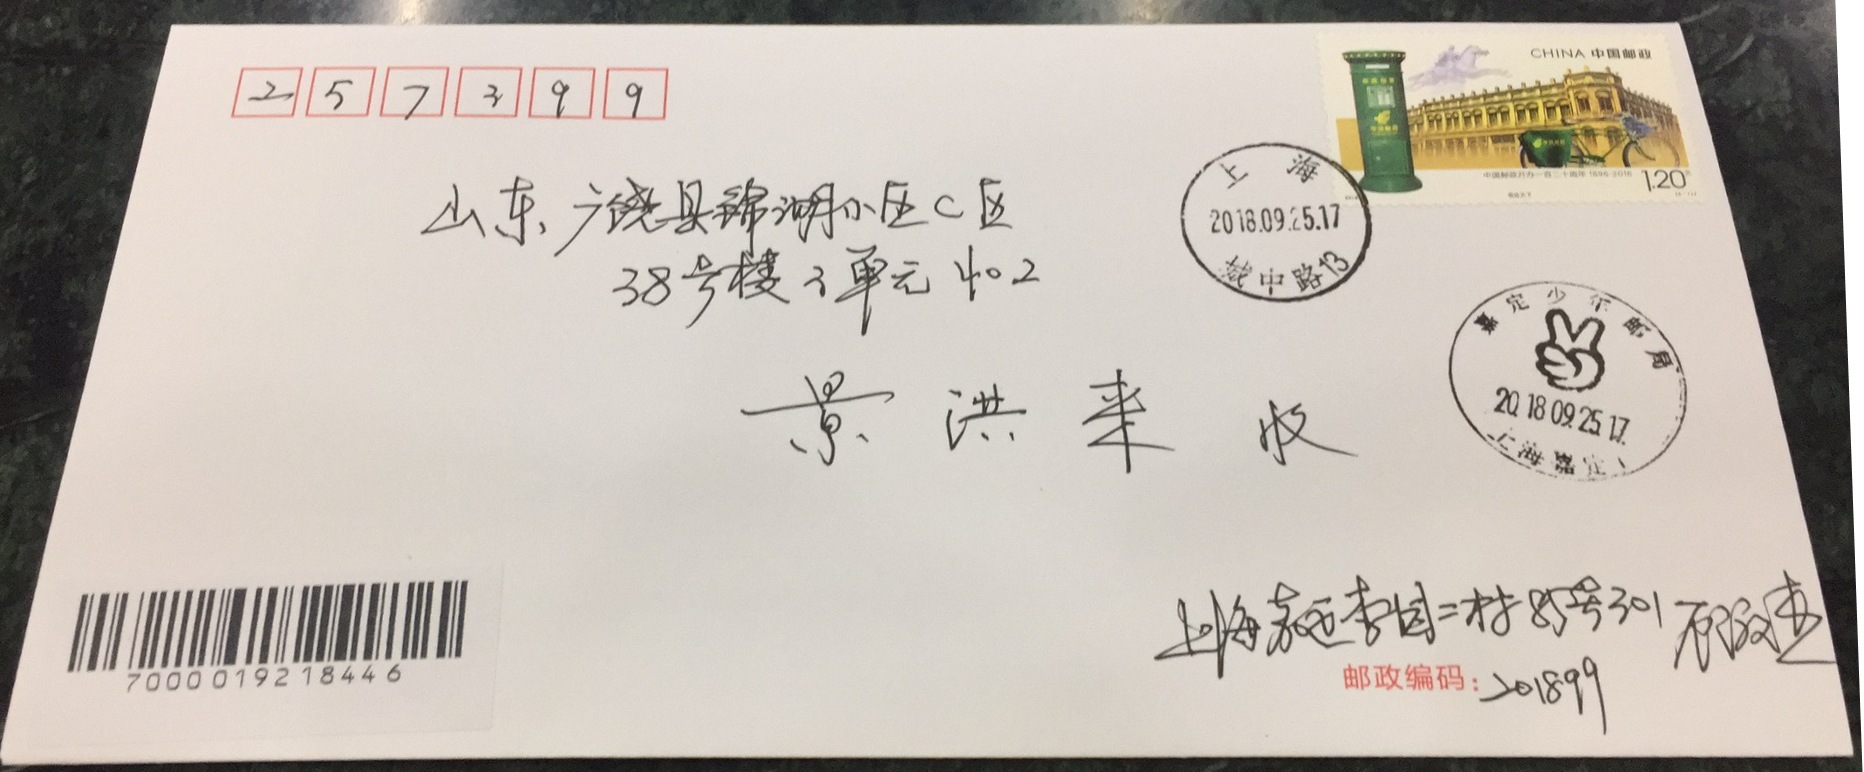 257399
CHINA 中国邮政
中国邮政开办一百二十周年 1896-2016
1.20
上海
2018.09.25.17
城中路13
山东广饶县锦湖小区C区
38号楼3单元402
嘉定少年邮局
2018.09.25.17
上海嘉定
景洪来 收
上海嘉定李园二村85号301
邮政编码：201899
7000019218446